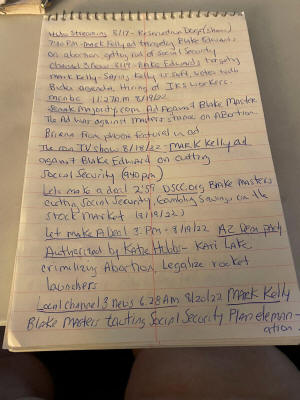 Hulu Streaming 8/17 - Reservation Dogs (show)
7:30 PM - Mark Kelly ad targeting Blake Edwards
on abortion, getting rid of Social Security
Channel 3 Now 8/19 - Blake Edwards targeting
Mark Kelly - Saying Kelly is soft, votes with
Biden agenda, Hiring of IRS workers.
msnbc 11:27am 8/19/22
Senate Majority.com Ad Against Blake Masters
The Ad was against masters stance on Abortion.
Briana From phoenix featured in ad
TV show 8/19/22 - Mark Kelly ad
against Blake Edward on cutting
Social Security (9:40 pm)
Lets make a deal 2:57 DSCC.org Blake Masters
cutting Social Security, Gambling Savings in the
Stock market (8/19/22)
Let make A Deal 3:PM - 8/19/22 AZ Dem Party
Authorized by Katie Hobbs - Kari Lake
crimilizing Abortion, Legalize rocket
launchers
Local channel 3 news 6:28 Am 8/20/22 Mark Kelly
Blake masters tauting Social Security Plan